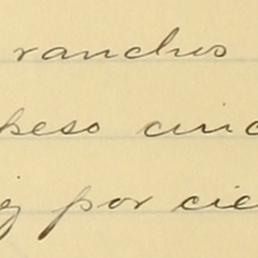 ranchos
peso cinc
y por cie